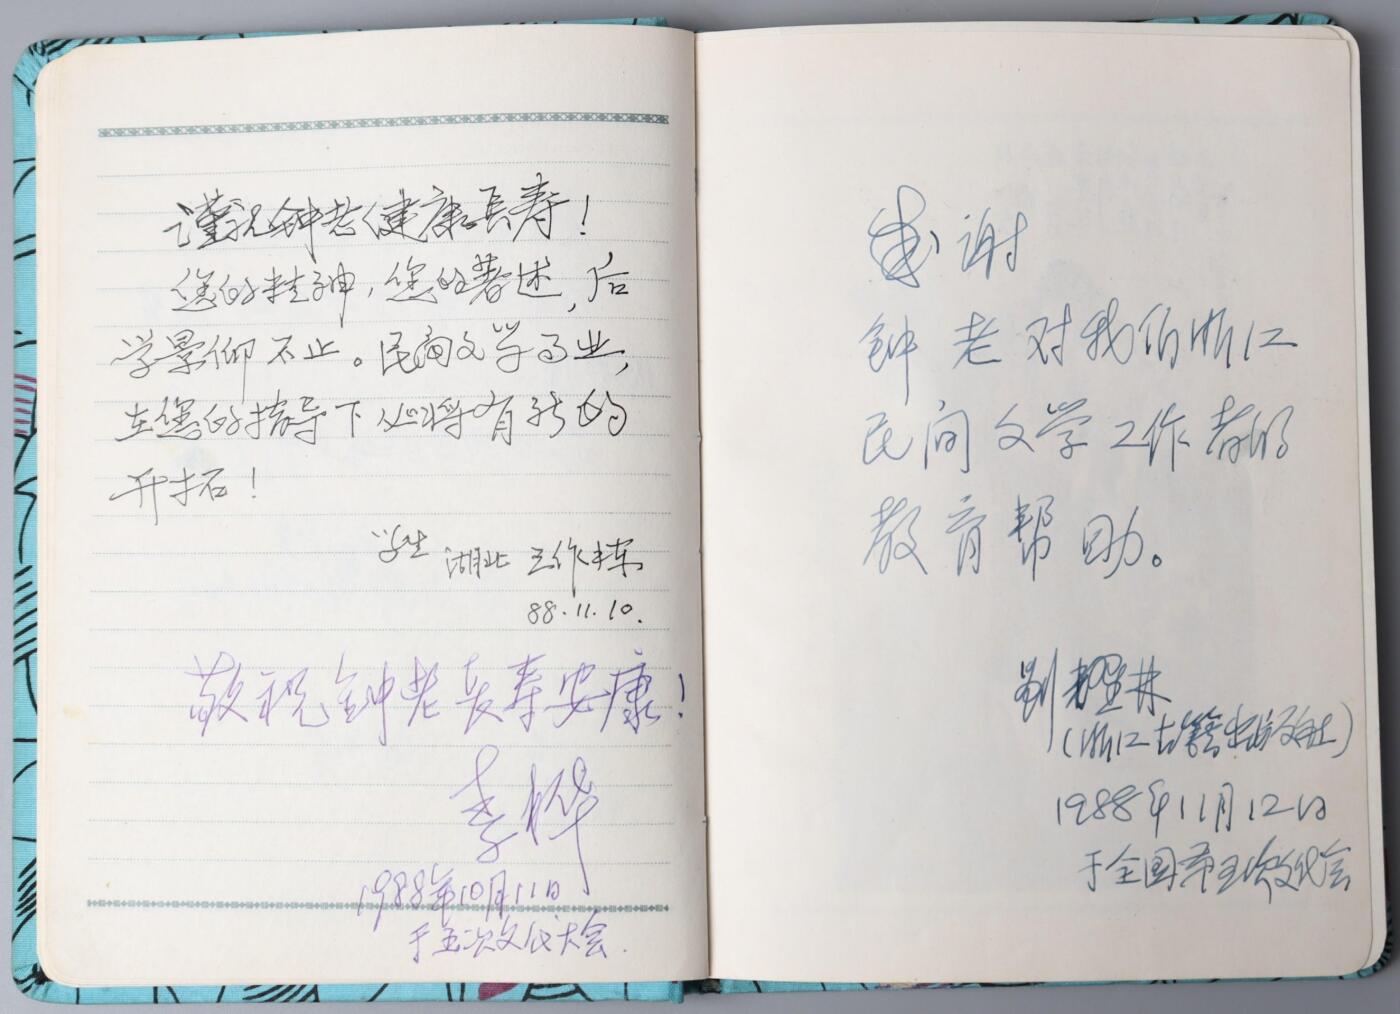 谨祝钟老健康长寿！
您的精神，您的著述，后
学景仰不止。民间文学事业，
在您的指导下必将有新的
开拓！
学生 湖北 王作栋
88.11.10.
敬祝钟老长寿安康！
李桦
1988年10月11日
于五次文代大会.
感谢
钟老对我们浙江
民间文学工作者的
教育帮助。
刘耀林
（浙江古籍出版社）
1988年11月12日
于全国第五次文代会